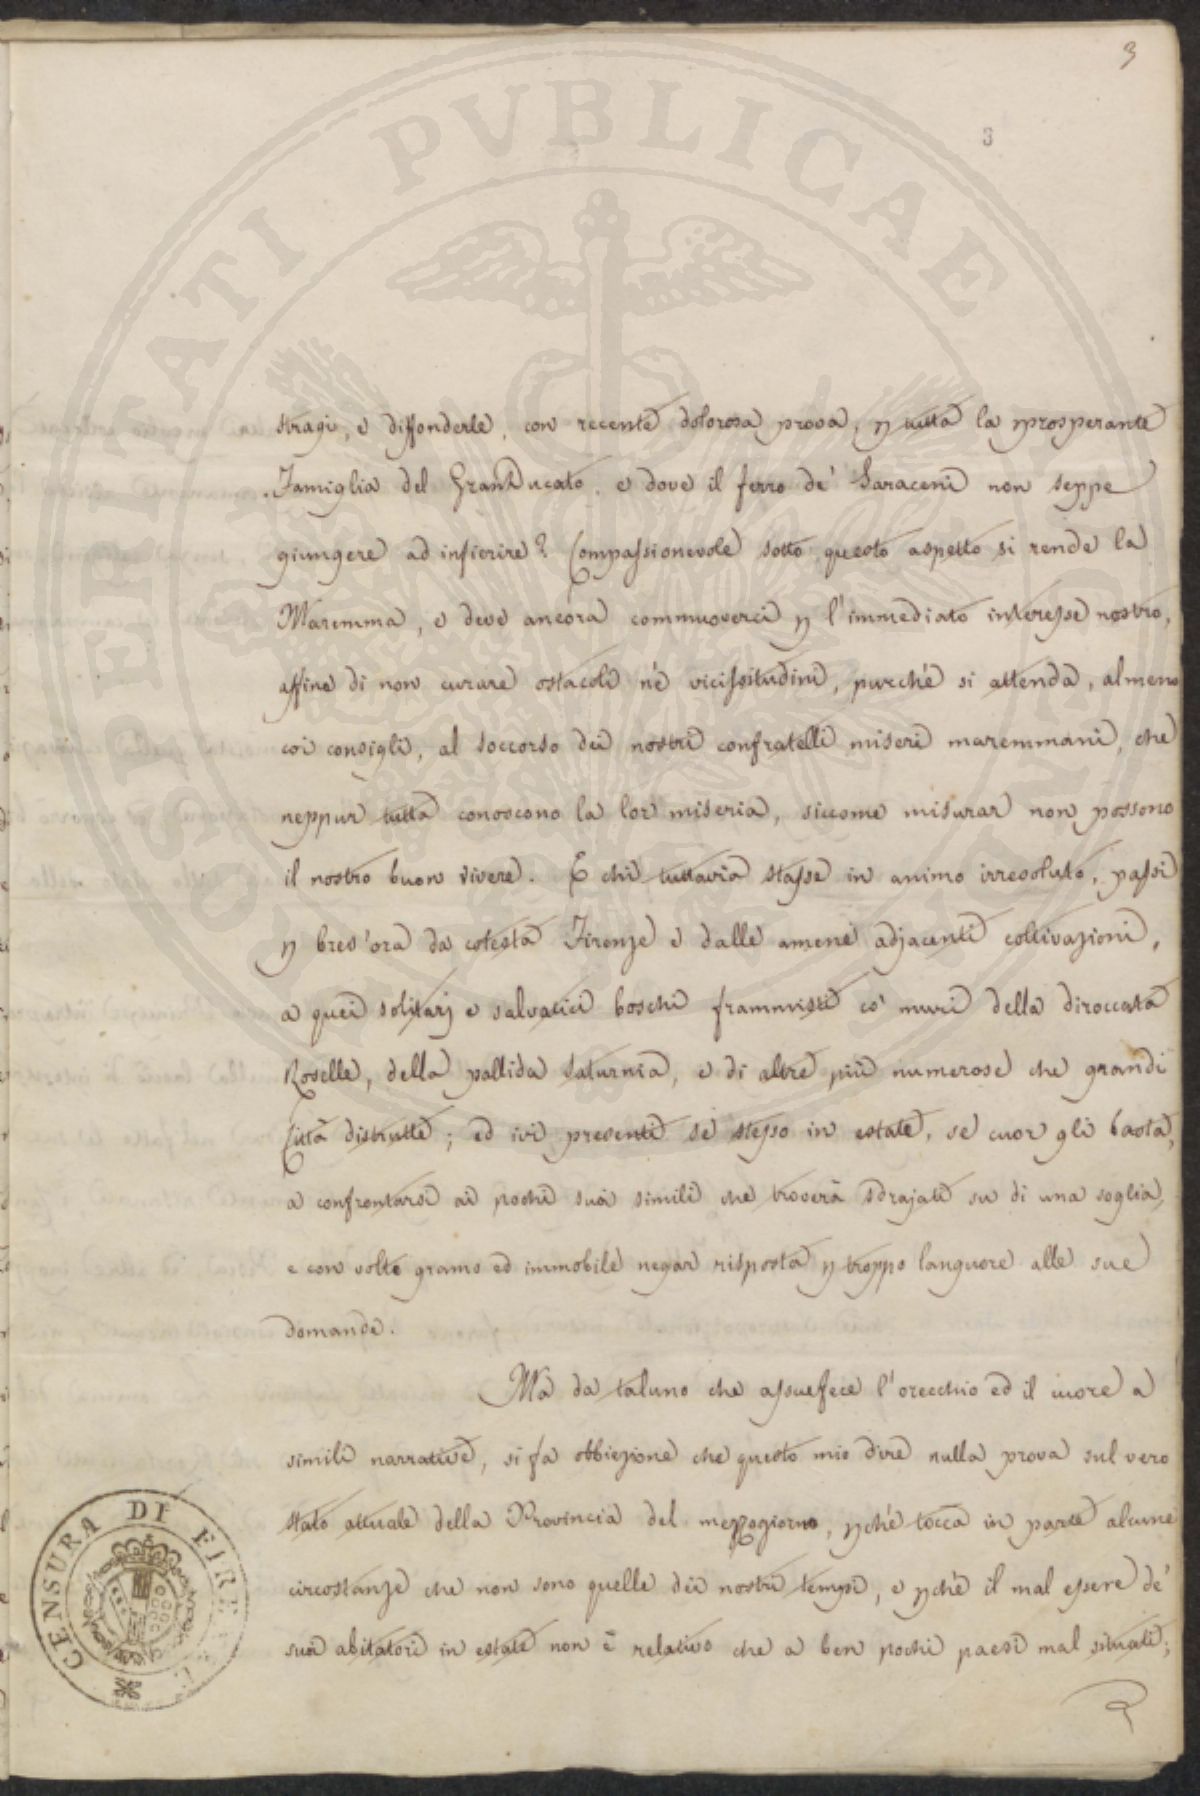 3
3
stragi, e diffonderle, con recente dolorosa prova, p tutta la prosperante
Famiglia del GranDucato, e dove il ferro de' Saraceni non seppe
giungere ad infierire? Compassionevole sotto questo aspetto si rende la
Maremma, e deve ancora commuoverci p l'immediato interesse nostro,
affine di non curare ostacoli nè vicissitudini, purchè si attenda, almeno
coi consigli, al soccorso dei nostri confratelli miseri maremmani, che
neppur tutta conoscono la lor miseria, siccome misurar non possono
il nostro buon vivere. E chi tuttavia stasse in animo irresoluto, passi
p brev'ora da cotesta Firenze e dalle amene adjacenti coltivazioni,
a quei solitarj e salvatici boschi frammisti co' muri della diroccata
Roselle, della pallida Saturnia, e di altre più numerose che grandi
Città distrutte; ed ivi presenti se stesso in estate, se cuor gli basta,
a confrontarsi ai pochi suoi simili che troverà sdrajati su di una soglia,
e con volto gramo ed immobile negar risposta p troppo languore alle sue
domande.
Ma da taluno che assuefece l'orecchio ed il cuore a
simili narrative, si fa obbiezione che questo mio dire nulla prova sul vero
stato attuale della Provincia del mezzogiorno, pchè tocca in parte alcune
circostanze che non sono quelle dei nostri tempi, e pchè il mal essere de'
suoi abitatori in estate non è relativo che a ben pochi paesi mal situati;
CENSURA DI FIRENZE
PROSPERITATI PVBLICAE